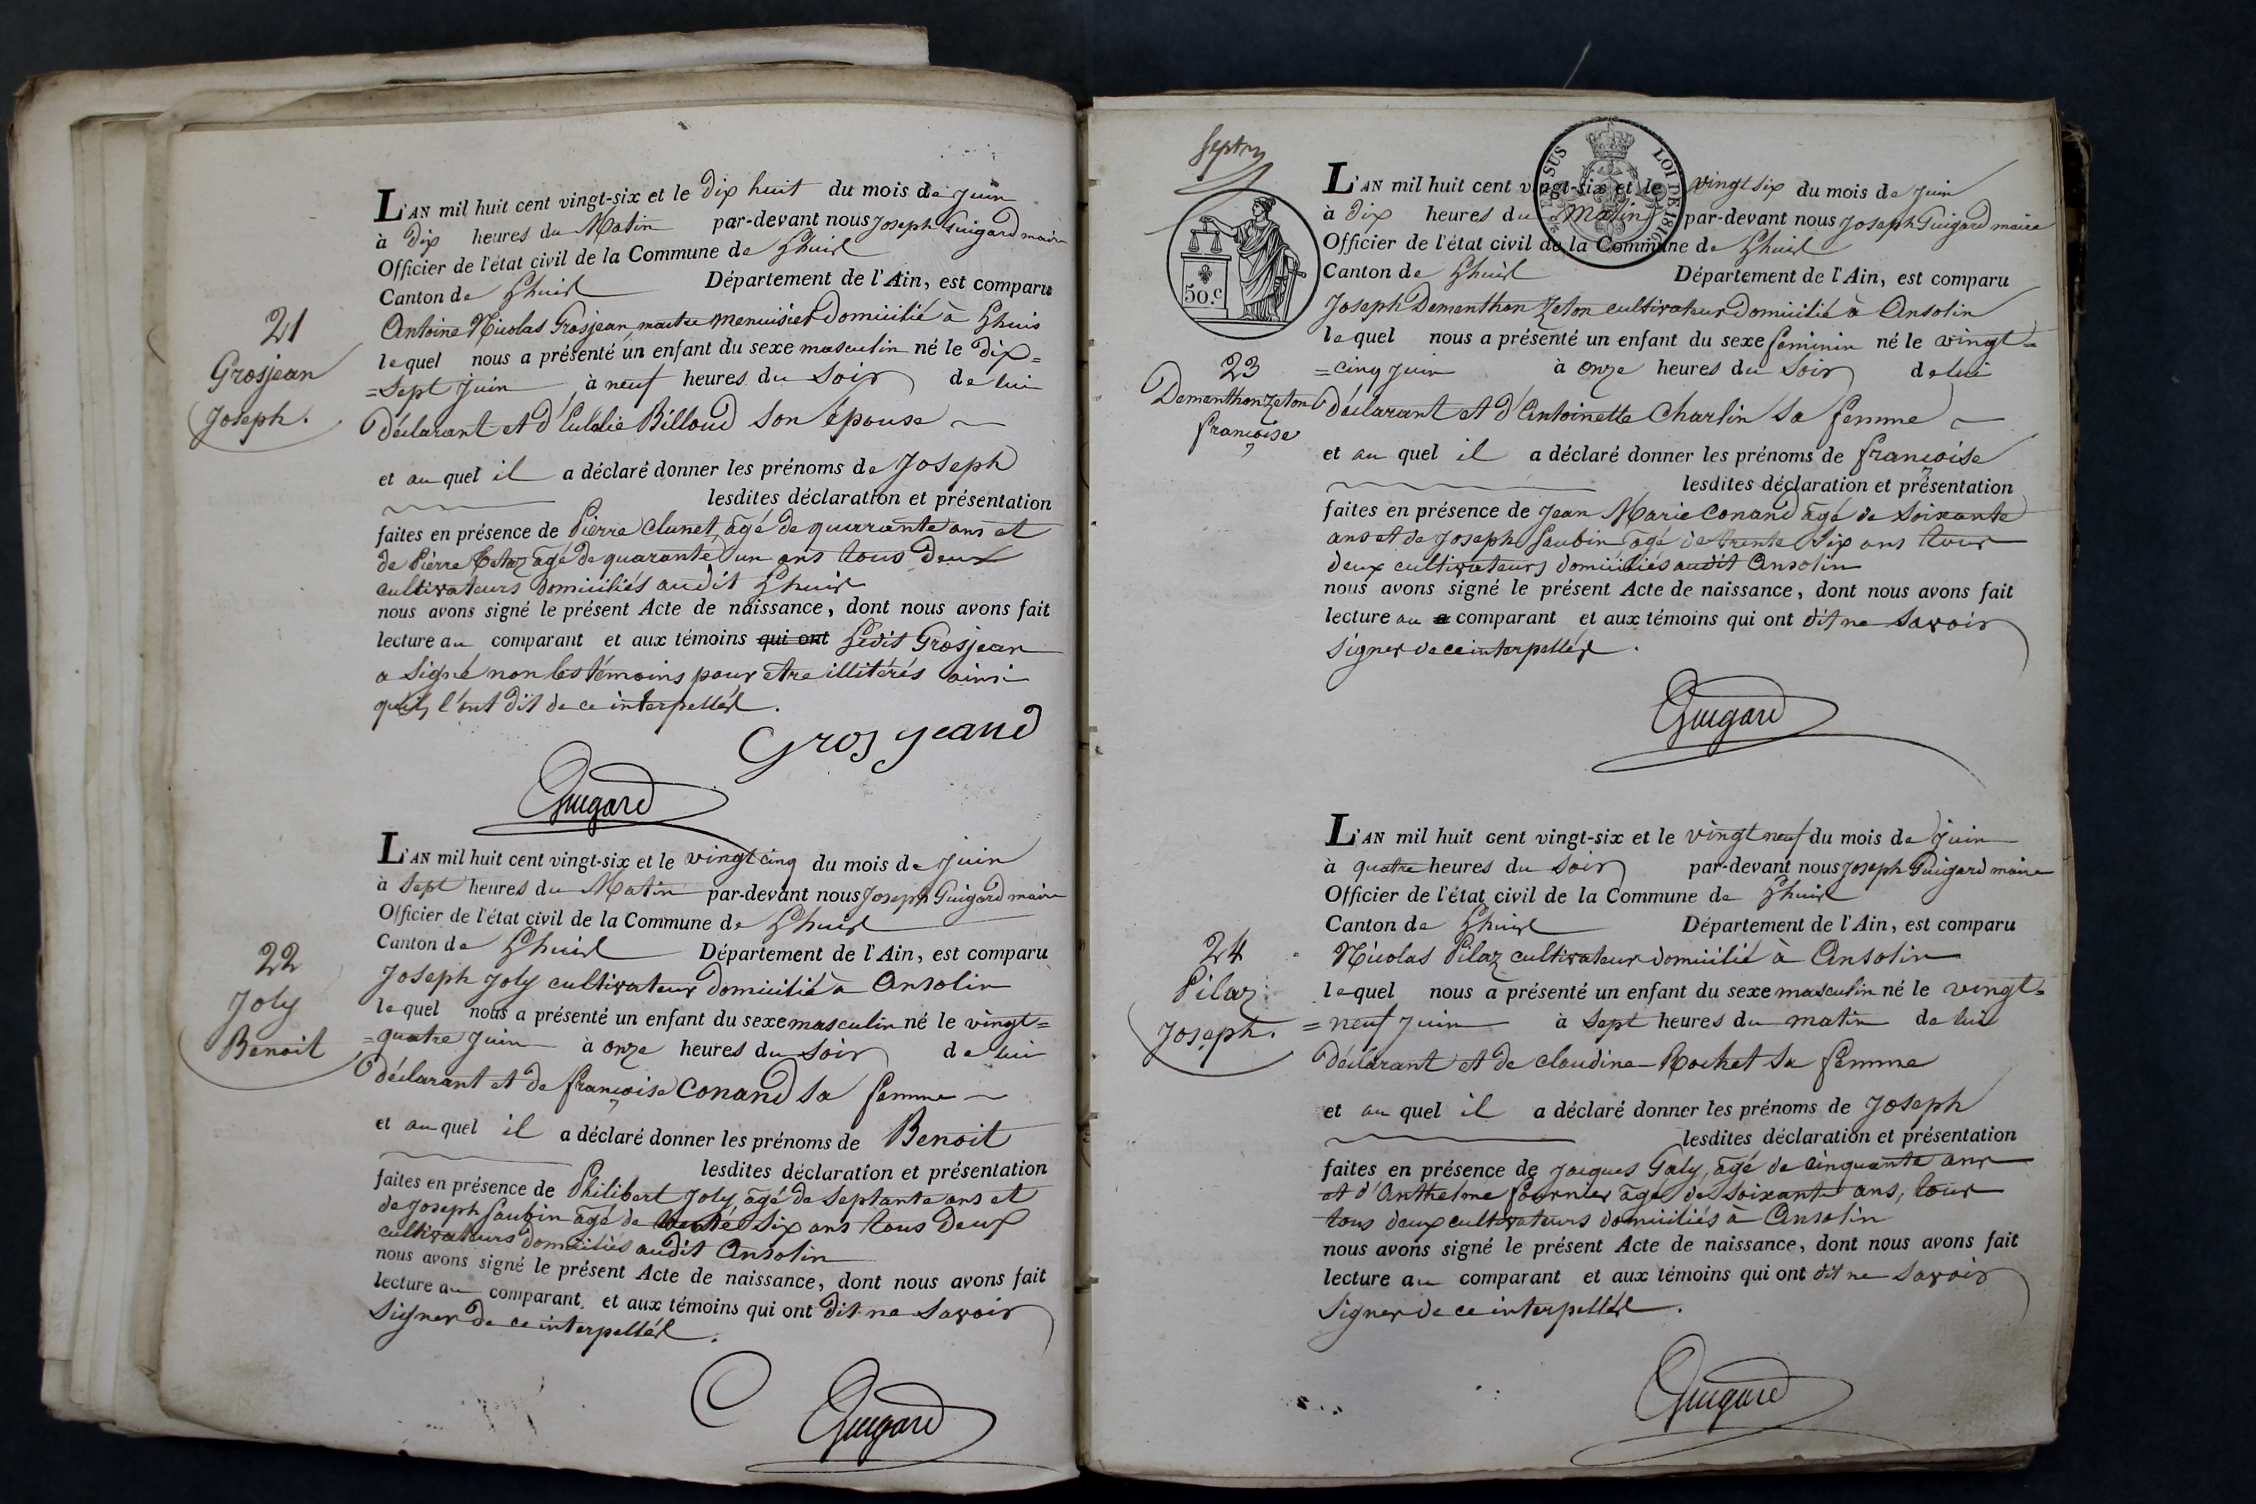 21
Grosjean
Joseph.
L'AN mil huit cent vingt-six et le dix huit du mois de juin
à dix heures du Matin par-devant nous Joseph Guigard maire
Officier de l'état civil de la Commune de Lhuis
Canton de Lhuis Département de l'Ain, est comparu
Antoine Nicolas Grosjean maitre menuisier domicilié à Lhuis
lequel nous a présenté un enfant du sexe masculin né le dix=
=sept juin à neuf heures du Soir de lui
déclarant et d'Eulalie Billoud son épouse
et au quel il a déclaré donner les prénoms de Joseph
lesdites déclaration et présentation
faites en présence de Pierre Clunet, âgé de quarante ans et
de Pierre âgé de quarante un ans tous deux
cultivateurs domiciliés audit Lhuis
nous avons signé le présent Acte de naissance, dont nous avons fait
lecture au comparant et aux témoins qui ont Ledit Grosjean
a Signé non les témoins pour etre illitérés ainsi
qu'ils l'ont dit de ce interpellés.
Grosjeand
Guigard
22
Joly
Benoit
L'AN mil huit cent vingt-six et le vingt cinq du mois de juin
à Sept heures du Matin par-devant nous Joseph Guigard maire
Officier de l'état civil de la Commune de Lhuis
Canton de Lhuis Département de l'Ain, est comparu
Joseph Joly cultivateur domicilié à Ansolin
lequel nous a présenté un enfant du sexe masculin né le vingt=
=quatre juin à onze heures du Soir de lui
déclarant et de françoise Conand sa femme
et au quel il a déclaré donner les prénoms de Benoit
lesdites déclaration et présentation
faites en présence de Philibert Joly, âgé de Septante ans et
de Joseph Saubin âgé de trente Six ans tous deux
cultivateurs domiciliés audit Ansolin
nous avons signé le présent Acte de naissance, dont nous avons fait
lecture au comparant, et aux témoins qui ont dit ne Savoir
Signer de ce interpellés.
Guigard
50.c
LOI DE 1816
23
Dementhon Zeton
françoise
L'AN mil huit cent vingt-six et le vingt six du mois de juin
à dix heures du Matin par-devant nous Joseph Guigard maire
Officier de l'état civil de la Commune de Lhuis
Canton de Lhuis Département de l'Ain, est comparu
Joseph Dementhon Zeton cultivateur domicilié à Ansolin
lequel nous a présenté un enfant du sexe feminin né le vingt=
=cinq juin à onze heures du Soir de lui
déclarant et d'Antoinette Charlin sa femme
et au quel il a déclaré donner les prénoms de françoise
lesdites déclaration et présentation
faites en présence de Jean Marie Conand âgé de Soixante
ans et de Joseph Saubin âgé de trente Six ans tous
deux cultivateurs domiciliés audit Ansolin
nous avons signé le présent Acte de naissance, dont nous avons fait
lecture au comparant et aux témoins qui ont dit ne Savoir
Signer de ce interpellés.
Guigard
24
Pilaz
Joseph.
L'AN mil huit cent vingt-six et le vingt neuf du mois de juin
à quatre heures du Soir par-devant nous Joseph Guigard maire
Officier de l'état civil de la Commune de Lhuis
Canton de Lhuis Département de l'Ain, est comparu
Nicolas Pilaz cultivateur domicilié à Ansolin
lequel nous a présenté un enfant du sexe masculin né le vingt=
=neuf juin à Sept heures du matin de lui
déclarant et de claudine Rochet sa femme
et au quel il a déclaré donner les prénoms de Joseph
lesdites déclaration et présentation
faites en présence de Jacques Galy, âgé de cinquante ans
et d'Anthelme fournier âgé de Soixante ans, tous
tous deux cultivateurs domiciliés à Ansolin
nous avons signé le présent Acte de naissance, dont nous avons fait
lecture au comparant et aux témoins qui ont dit ne Savoir
Signer de ce interpellés.
Guigard